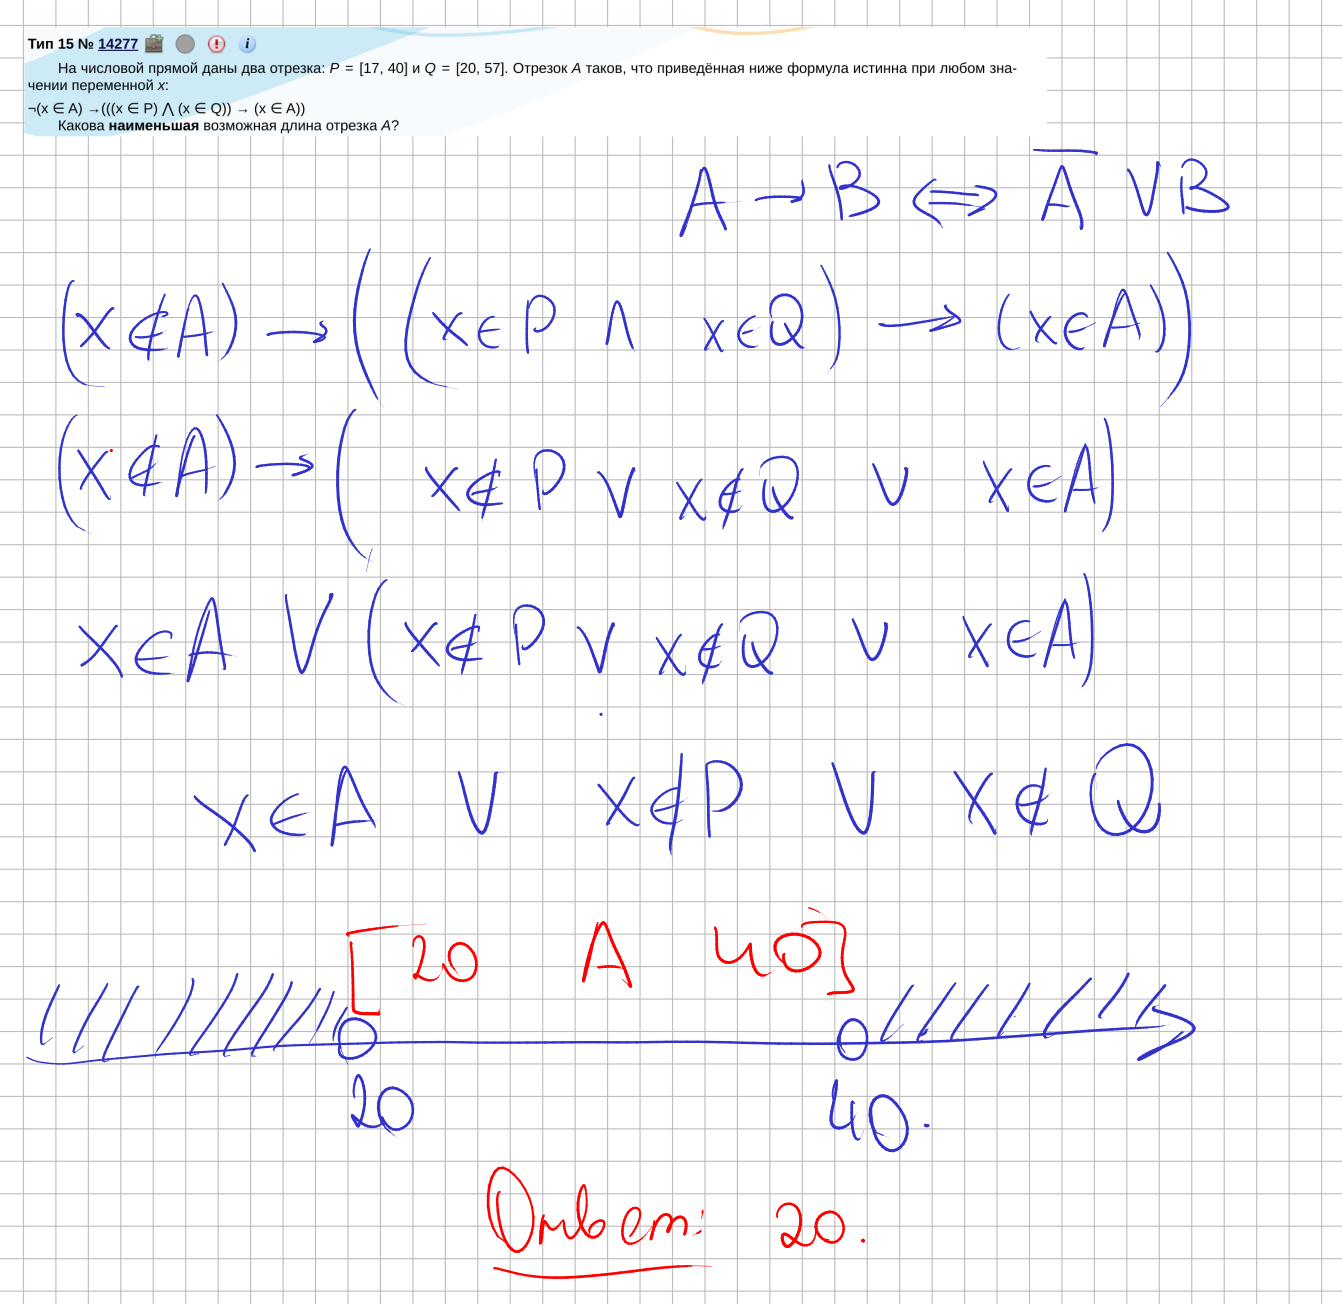 Тип 15 № 14277
На числовой прямой даны два отрезка: P = [17, 40] и Q = [20, 57]. Отрезок A таков, что приведённая ниже формула истинна при любом зна-
чении переменной x:
¬(x ∈ A) →(((x ∈ P) ⋀ (x ∈ Q)) → (x ∈ A))
Какова наименьшая возможная длина отрезка A?
A → B ⇔ A̅ ∨ B
(x ∉ A) → ((x ∈ P ∧ x ∈ Q) → (x ∈ A))
(x ∉ A) → (x ∉ P ∨ x ∉ Q ∨ x ∈ A)
x ∈ A ∨ (x ∉ P ∨ x ∉ Q ∨ x ∈ A)
x ∈ A ∨ x ∉ P ∨ x ∉ Q
[20 A 40]
20 40.
Ответ: 20.